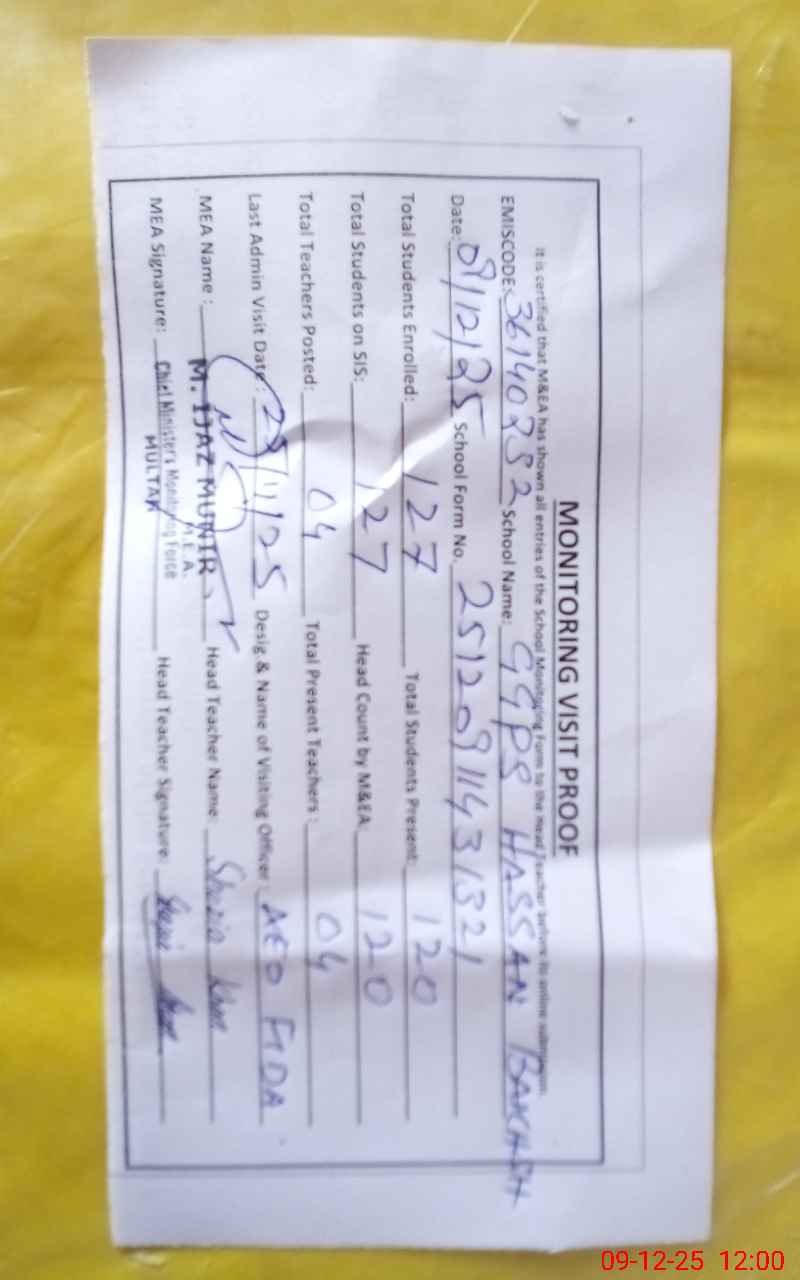 MONITORING VISIT PROOF
It is certified that M&EA has shown all entries of the School Monitoring Form to the Head Teacher before its online submission.
EMISCODE: 36140952 School Name: GGPS HASSAN BAKHSH
Date: 09/12/25 School Form No. 25120911431321
Total Students Enrolled: 127 Total Students Present: 120
Total Students on SIS: 127 Head Count by M&EA: 120
Total Teachers Posted: 04 Total Present Teachers: 04
Last Admin Visit Date: 29/11/25 Desig & Name of Visiting Officer: AEO FIDA
MEA Name: M. IJAZ MUNIR Head Teacher Name: Shazia Khan
M.E.A.
MEA Signature: Chief Minister's Monitoring Force Head Teacher Signature:
MULTAN
09-12-25 12:00